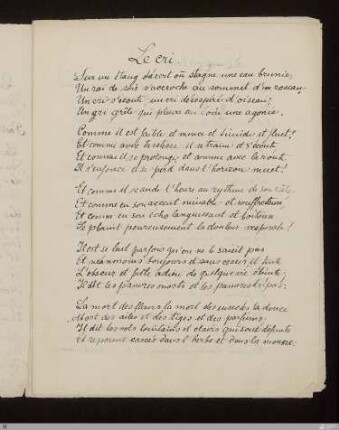 Le cri
Sur un étang désert où stagne une eau brunie,
Un rai de soir s'accroche au sommet d'un roseau,
Un cri s'écoute, un cri désespéré d'oiseau,
Un cri grêle, qui pleure au loin une agonie.
Comme il est faible et mince et timide et fluet!
Et comme avec tristesse il se traîne et s'écoute
Et comme il se prolonge et comme avec la route
Il s'enfonce et se perd dans l'horizon muet!
Et comme il scande l'heure au rythme de son râle
Et comme en son accent minable et souffreteux
Et comme en son écho languissant et boiteux
Se plaint la douleur vespérale!
Il est si parfois qu'on ne le saisit pas
Et néanmoins toujours et sans cesse il tinte
L'obscur et adieu de quelque vie éteinte,
Il dit les pauvres morts et les pauvres trépas:
La mort des fleurs, la mort des insectes, la douce
Mort des ailes et des tiges et des parfums
Il dit les vols lointains et clairs qui sont défunts
Et reposent cassés dans l'herbe et dans la mousse.